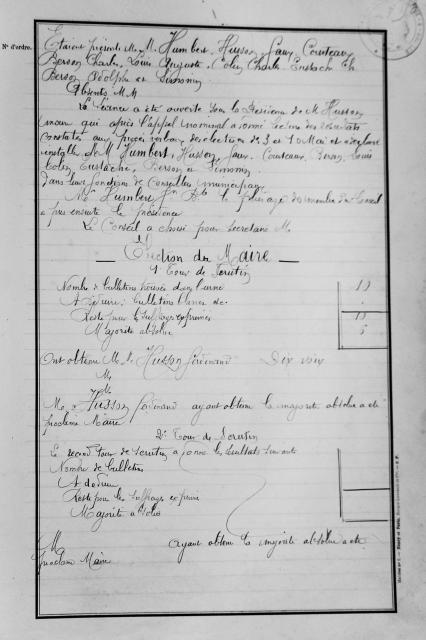 N° d'ordre.
Etaient présents M.M. Humbert, Husson, Laux, Couteaux
Berson Charles, Louis Auguste, Colin Charles, Eustache Ch
Berson Adolphe et Simonin
Absents M.M.
La séance a été ouverte sous la Présidence de M. Husson
maire qui après l'appel nominal a donné lecture des résultats
constatés aux procès verbaux des élections des 3 et 10 Mai et a déclaré
installer M.M. Humbert, Husson, Laux, Couteaux, Louis
Colin, Eustache, Berson et Simonin
dans leurs fonctions de conseillers municipaux
M. Humbert le plus âgé des membres du Conseil
a pris ensuite la présidence
Le Conseil a choisi pour secrétaire M.
Election du Maire
1er Tour de Scrutin
Nombre de bulletins trouvés dans l'urne 10
A déduire; bulletins blancs etc.
Reste pour les suffrages exprimés 10
Majorité absolue 6
Ont obtenu M.M. Husson Ferdinand Dix voix
M.
M.
M. Husson Ferdinand ayant obtenu la majorité absolue a été
proclamé Maire
2e Tour de Scrutin
Le second tour de scrutin a donné les résultats suivants
Nombre de bulletins
A déduire
Reste pour les suffrages exprimés
Majorité absolue
M. ayant obtenu la majorité absolue a été
proclamé Maire